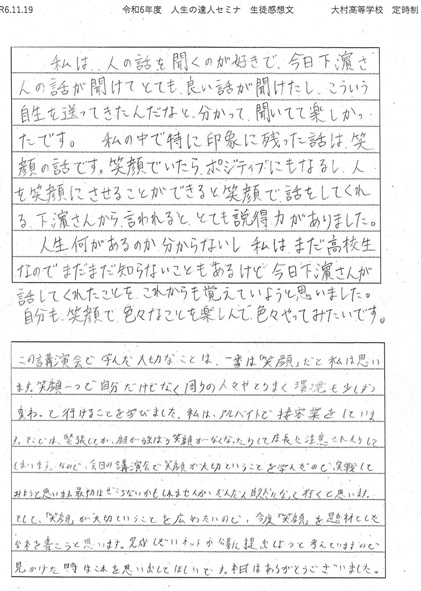 R6.11.19 令和6年度 人生の達人セミナ 生徒感想文 大村高等学校 定時制
私は、人の話を聞くのが好きで、今日下濵さ
んの話が聞けてとても、良い話が聞けたし、こういう
自生を送ってきたんだなと、分かって、聞いてて楽しかっ
たです。 私の中で特に印象に残った話は、笑
顔の話です。笑顔でいたら、ポジティブにもなるし、人
を笑顔にさせることができると笑顔で、話をしてくれ
る、下濵さんから、言われると、とても説得力がありました。
人生何があるのか分からないし 私はまだ高校生
なのでまだまだ知らないこともあるけど今日下濵さんが
話してくれたことを、これからも覚えていようと思いました。
自分も、笑顔で、色々なことを楽しんで色々やってみたいです。
この講演会で学んだ大切なことは、一番は「笑顔」だと私は思い
ます。笑顔一つで自分だけでなく周りの人々やとりまく環境も少しずつ
変わって行けることを学びました。私は、アルバイトで接客業をしていま
す。そこでは、緊張してか、顔から笑顔がなくなったりして店長に注意されたりして
しまいます。なので、今日の講演会で笑顔が大切ということを学んだので、実戦して
みようと思います。最初はぎこちないかもしれませんがだんだん取れて行くと思います。
そして、「笑顔」が大切ということを広めたいので、今度「笑顔」を題材とした
台本を書こうと思います。完成しだいネットか会に提出しようと考えていますので
見かけた時はこれを思い出してほしいです。本日はありがとうございました。